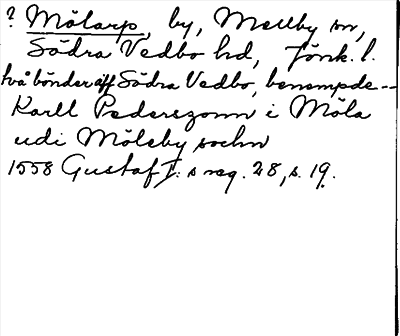 ? Mölarp, by, Mellby sn,
Södra Vedbo hd, Jönk. l.
två bönder aff Södra Vedbo, benempde --
Karll Pederszonn i Möla
udi Möleby sochn
1558 Gustaf I:s reg. 28, s. 19.